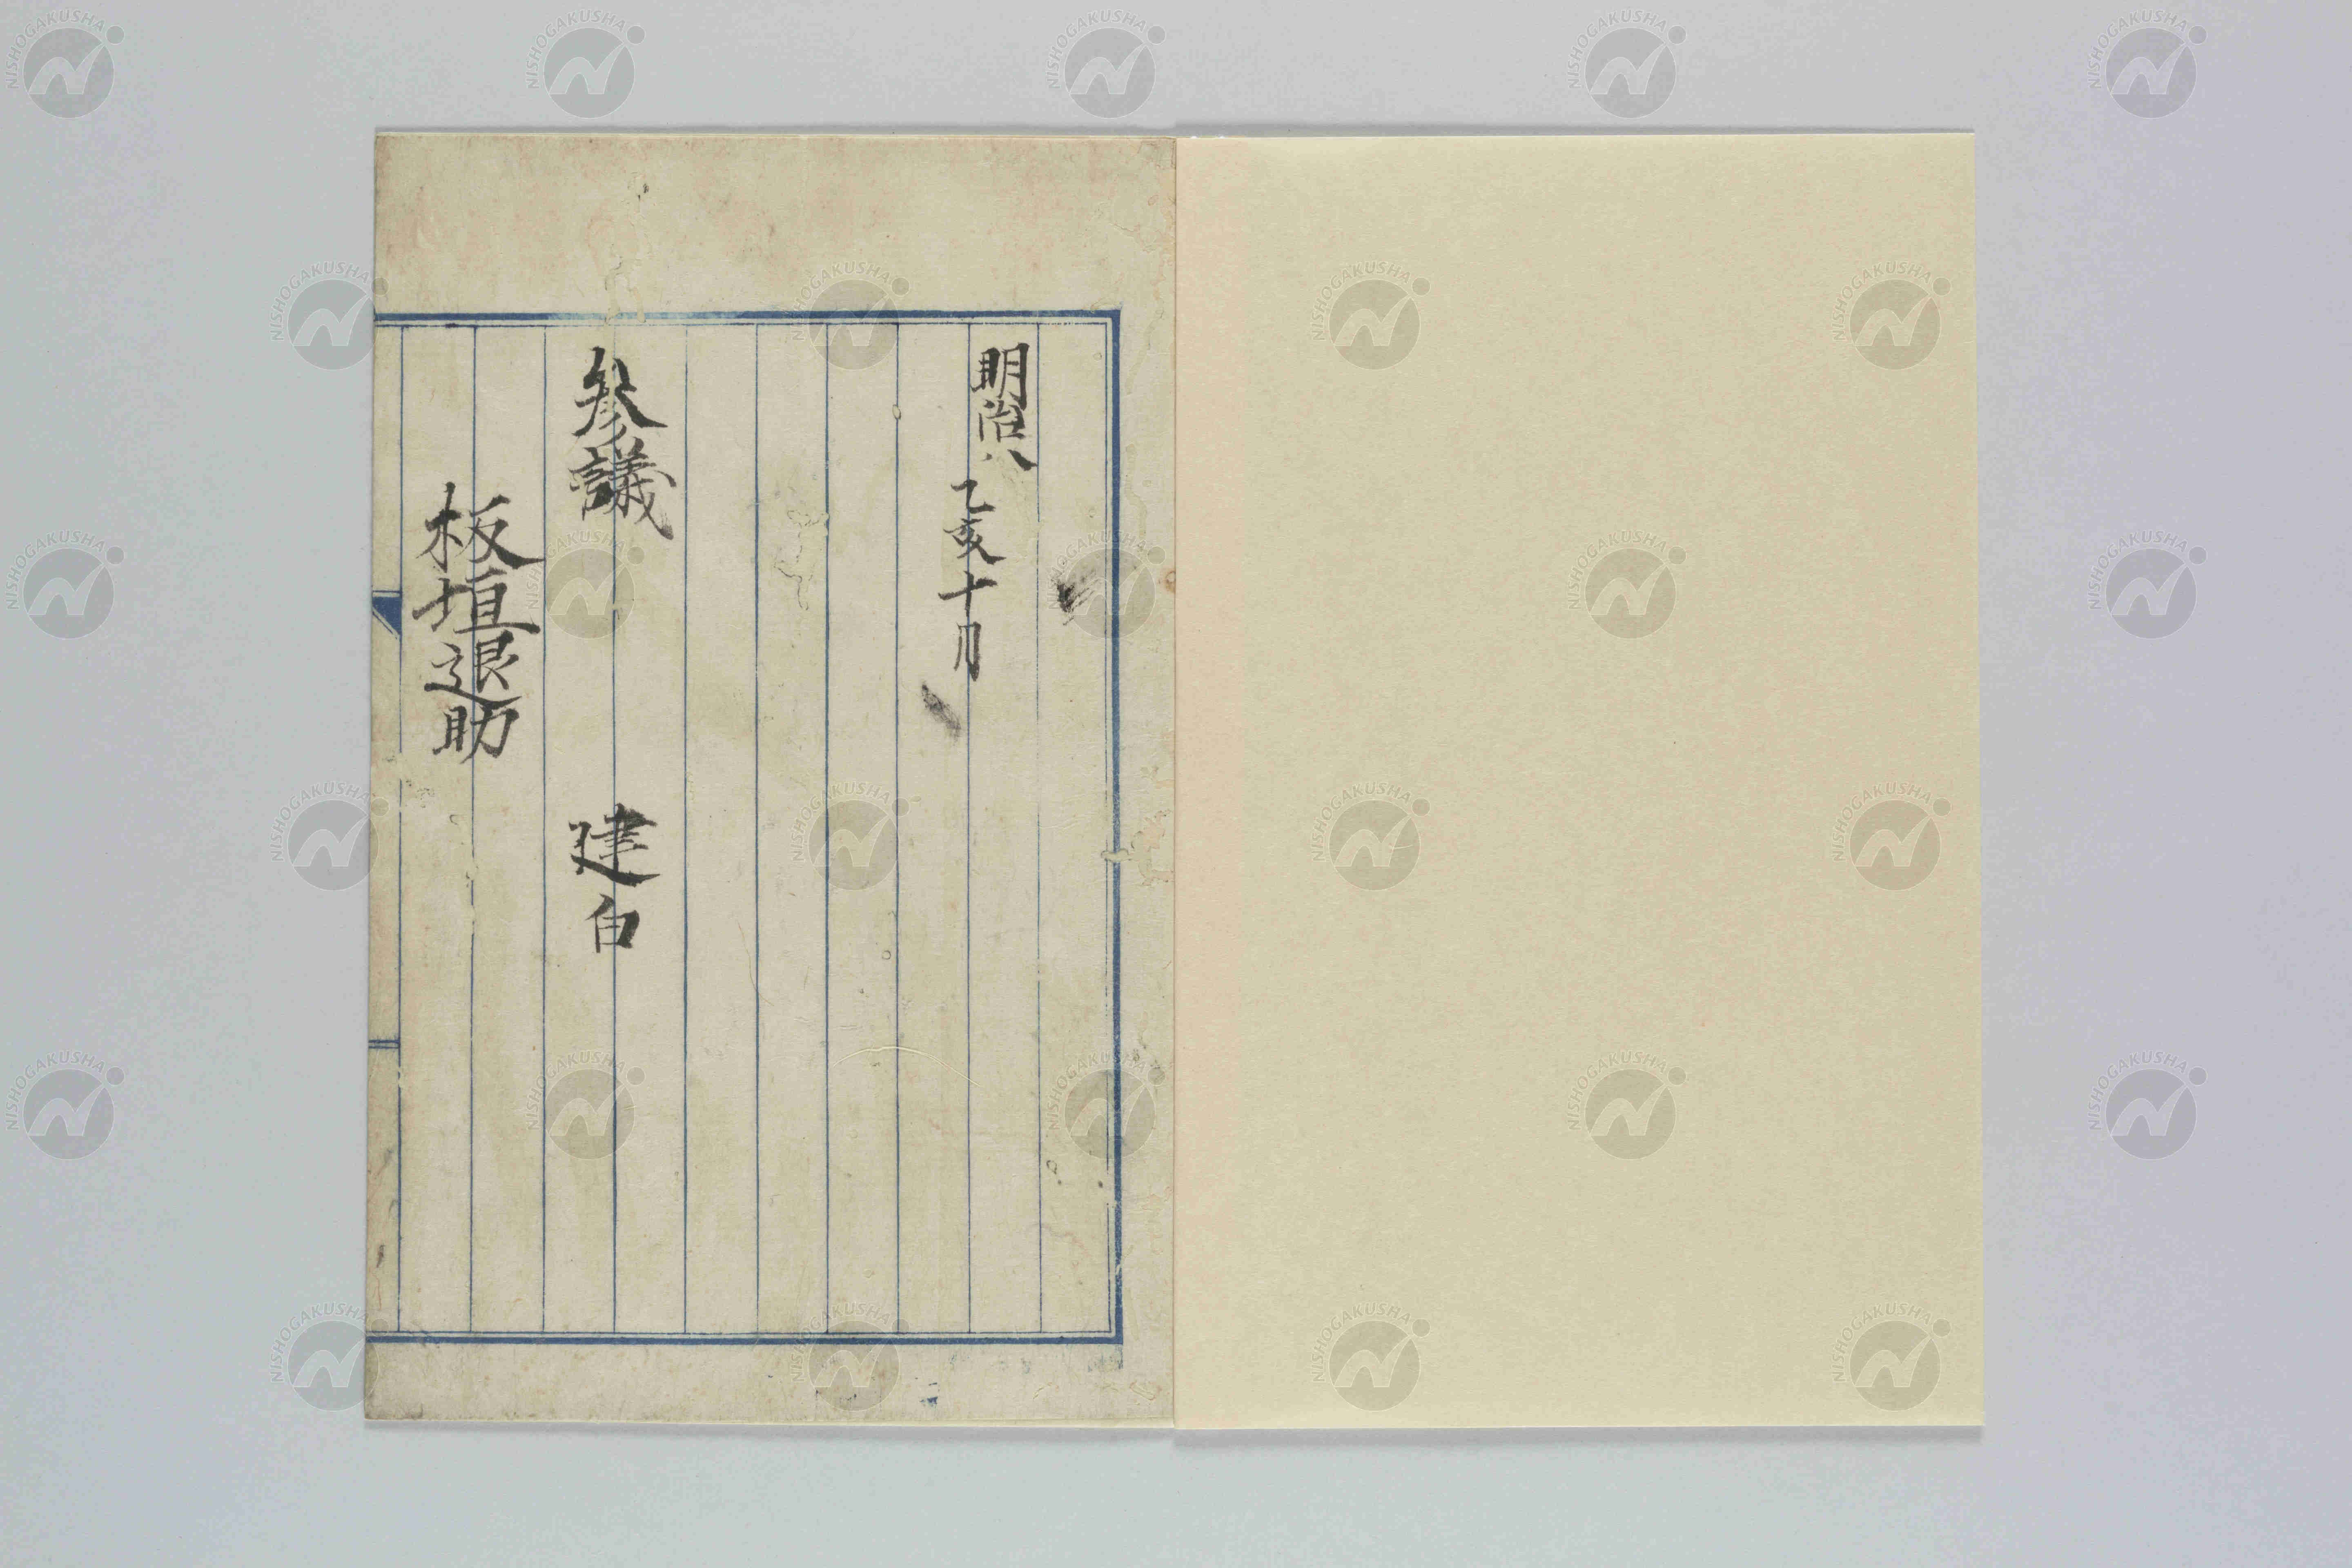 明治八
乙亥十月
参議 建白
板垣退助